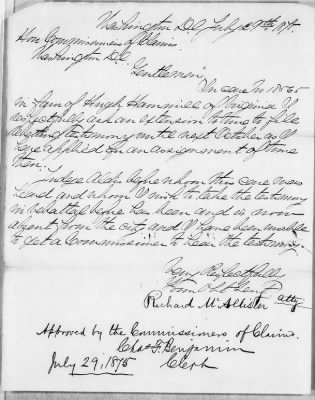 Washington D.C. July 29th 1875.
Hon Commissioners of Claims.
Washington D.C.
Gentlemen:
In case No 18565
in favor of Hugh Hammill of Virginia I
respectfully ask an extension of time to file
rebutting testimony until next October as I
have applied for an assignment of time
then.
Judge Aldis before whom this case was
heard and whom I wish to take the testimony
in rebuttal before has been and is now
absent from the city and I have been unable
to get a Commissioner to hear the testimony.
Very Respectfully
Your Obt Servt
Richard McAllister atty
Approved by the Commissioners of Claims.
Chas F. Benjamin
July 29, 1875 Clerk